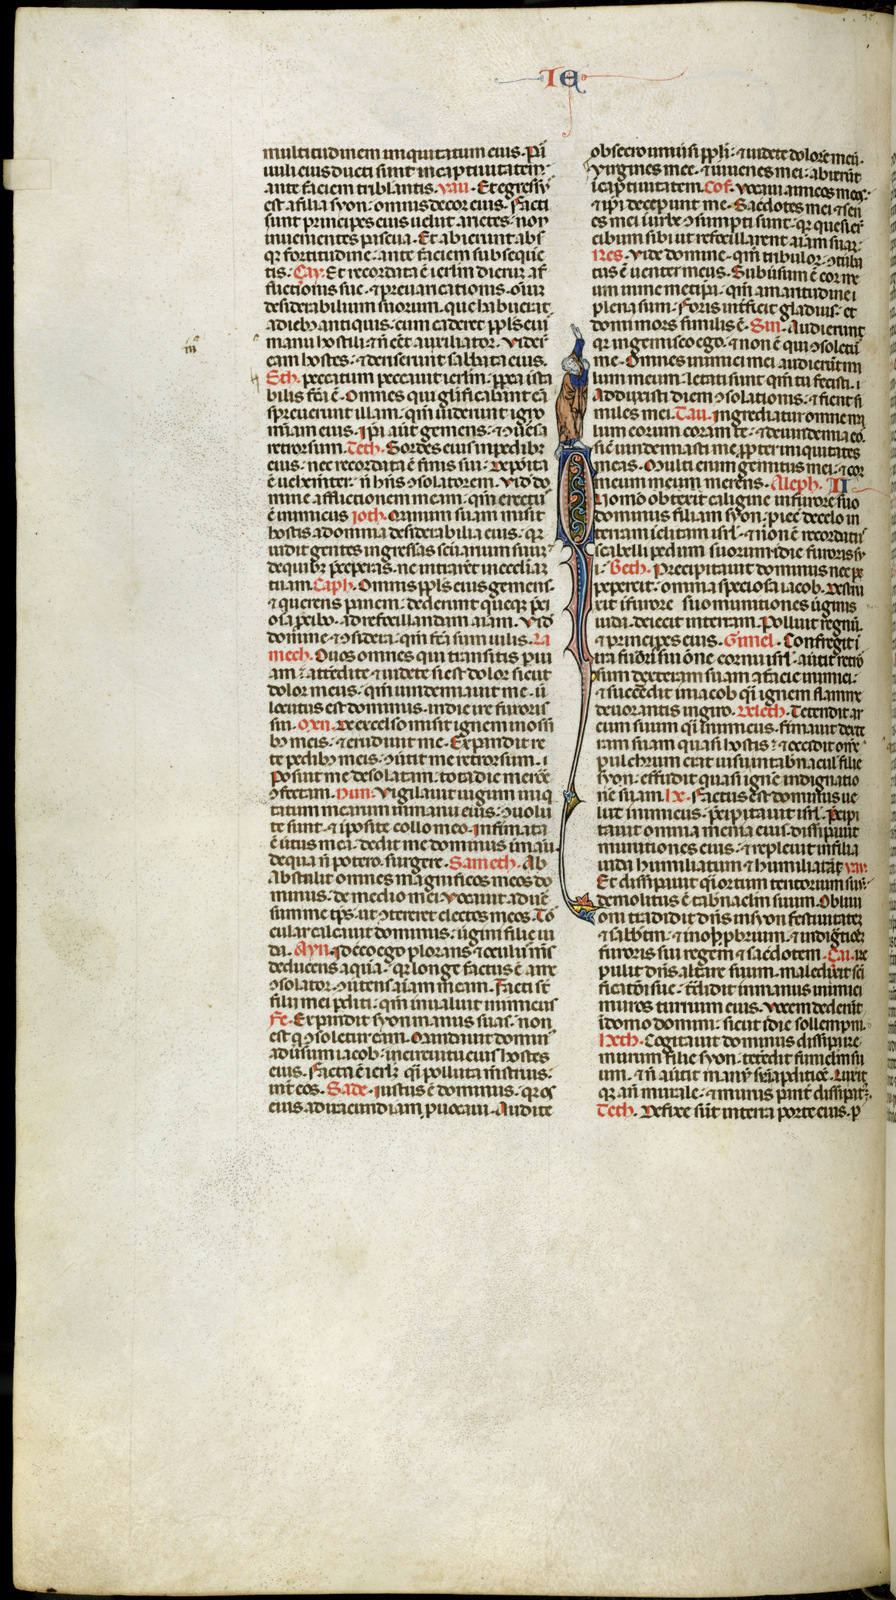 IE
multitudinem iniquitatum eius. Pṽ
uuli eius ducti sunt in captiuitatem.
ante faciem tribulantis. vau. Et egressꝰ
est a filia syon. omnis decor eius. Facti
sunt principes eius uelut arietes. non
inuenientes pascua. Et abierunt absꝗ
fortitudine. ante faciem subsequẽ
tis. Cay. Et recordata ẽ ierl̃m dierum af
flictionis sue. ⁊ preuaricationis. oĩuꝫ
desiderabilium suorum. que habuerat
a dieb antiquis. cum caderet ppl̃s eiꝰ
in manu hostili. ⁊ ñ eẽt auxiliator. Viderũt
eam hostes. ⁊ deriserunt sabbata eius.
Eth. peccatum peccauit ierl̃m. pp̃ea ista
bilis fc̃a ẽ. Omnes qui gl̃ificabant eã
spreuerunt illam. qm̃ uiderunt igno
miñam eius. Ip̃a aũt gemens. ⁊ ꝯũsa
retrorsum. Teth. Sordes eius in pedibꝫ
eius. nec recordata ẽ finis sui. Deposita
ẽ uehem̃ter. ñ hñs ꝯsolatorem. Vide do
mine afflictionem meam. qm̃ erectus
ẽ inimicus. Ioth. Manum suam misit
hostis ad omnia desiderabilia eius. qꝛ
uidit gentes ingressas sc̃uarium suũ.
de quibꝫ p̃ceperas. ne intrarẽt in eccl̃am
tuam. Caph. Omnis ppl̃s eius gemens.
⁊ querens panem. dederunt queqꝫ p̃ci
osa ꝓ cibo. ad refocillandam aĩam. Vide
domine ⁊ ꝯsidera. qm̃ fc̃a sum uilis. La
mech. O uos omnes qui transitis ꝑ ui
am. attẽdite ⁊ uidete si est dolor sicut
dolor meus. qm̃ uindemiauit me. ut
locutus est dominus. in die ire furoris
sui. Men. De excelso misit ignem in ossi
bꝫ meis. ⁊ erudiuit me. Expandit re
te pedibꝫ meis. ꝯuertit me retrorsum.
Posuit me desolatam. tota die merore
ꝯfectam. Nun. Vigilauit iugum iniqꝫ
tatum mearum in manu eius. ꝯuolu
te sunt. ⁊ ĩposite collo meo. Infirmata
ẽ uirtus mea. dedit me dominus in manu.
de qua ñ potero surgere. Sameth. Ab
Abstulit omnes magnificos meos do
minus. de medio mei. Vocauit aduer
sum me tp̃s. ut ꝯtereret electos meos. Tor
cular calcauit dominus. uirgini filie iu
da. Ayn. Idc̃o ego plorans. ⁊ oculus m̃s
deducens aquã. qꝛ longe factus ẽ a me
ꝯsolator. ꝯuertens aĩam meam. Facti st̃
filii mei perditi. qm̃ inualuit inimicus
Fe. Expandit syon manus suas. non
est qui ꝯsoletur eam. Mandauit dominꝰ
aduersum iacob. in circuitu eius hostes
eius. Facta ẽ ierl̃m quasi polluta m̃struis.
int̃ eos. Sade. Iustus ẽ dominus. qꝛ os
eius ad iracundiam ꝓuocaui. Audite
obsecro uniuersi ppl̃i. ⁊ uidete dolorem meũ.
Virgines mee. ⁊ iuuenes mei. abierũt
ĩ captiuitatem. Cof. Vocaui amicos meos.
⁊ ip̃i deceperunt me. Sacerdotes mei ⁊ sen
es mei ĩ urbe ꝯsumpti sunt. qꝛ quesier̃
cibum sibi ut refocillarent aĩam suaꝫ.
Res. Vide domine. qm̃ tribulor. ꝯturba
tus ẽ uenter meus. Subuersum ẽ cor me
um in memetip̃a. qm̃ amaritudine
plena sum. Foris int̃ficit gladius. et
domi mors similis ẽ. Sin. Audierunt
qꝛ ingemisco ego. ⁊ non ẽ qui ꝯsoletur
me. Omnes inimici mei audierunt ma
lum meum. letati sunt qm̃ tu fecisti.
Adduxisti diem ꝯsolationis. ⁊ fient si
miles mei. Tau. Ingrediatur omne ma
lum eorum coram te. ⁊ deuindemia eos.
sic̃ uindemiasti me. ꝓpter iniquitates
meas. Multi enim gemitus mei. ⁊ cor
meum merens. Aleph. II
Quomodo obtexit caligine in furore suo
dominus filiam syon. ꝓiecit de celo in
terram ĩclitam isrl̃. ⁊ non ẽ recordatꝰ
scabelli pedum suorum. ĩ die furoris sui
Beth. Precipitauit dominus nec pe
percit. omnia speciosa iacob. Destru
xit ĩ furore suo munitiones uirginis
iuda. deiecit in terram. Polluit regnũ.
⁊ principes eius. Gimel. Confregit ĩ
ira furoris sui om̃e cornu isrl̃. auertit retro
rsum dexteram suam a facie inimici.
⁊ succendit in iacob quasi ignem flamme
deuorantis in giro. Deleth. Tetendit ar
cum suum quasi inimicus. firmauit dexte
ram suam quasi hostis. ⁊ occidit om̃e
pulchrum erat uisu in tabernaculo filie
syon. effudit quasi ignem indignatio
nẽ suam. He. Factus est dominus ue
lut inimicus. p̃cipitauit isrl̃. P̃cipi
tauit omnia menia eius. dissipauit
munitiones eius. ⁊ repleuit in filia
iuda humiliatum ⁊ humiliatã. vau.
Et dissipauit quasi ortum tentorium suũ.
demolitus ẽ tabernaculum suum. Obliui
oni tradidit dñs in syon festiuitates
⁊ sabbtm. ⁊ in obprobrium. ⁊ indignatione
furoris sui regem ⁊ sacerdotem. Cai. Re
pulit dñs altare suum. maledixit sci
ficationi sue. Tradidit in manus inimici
muros turrium eius. Vocem dederũt
ĩ domo domini. sicut ĩ die sollempni.
Heth. Cogitauit dominus dissipare
murum filie syon. tetendit funiclm su
um. ⁊ ñ auertit manum suam a perditione. Luxit
qꝫ ante murale. ⁊ murus pariter dissipatꝰ ẽ.
Teth. Defixe sunt in terra porte eius. ꝑ